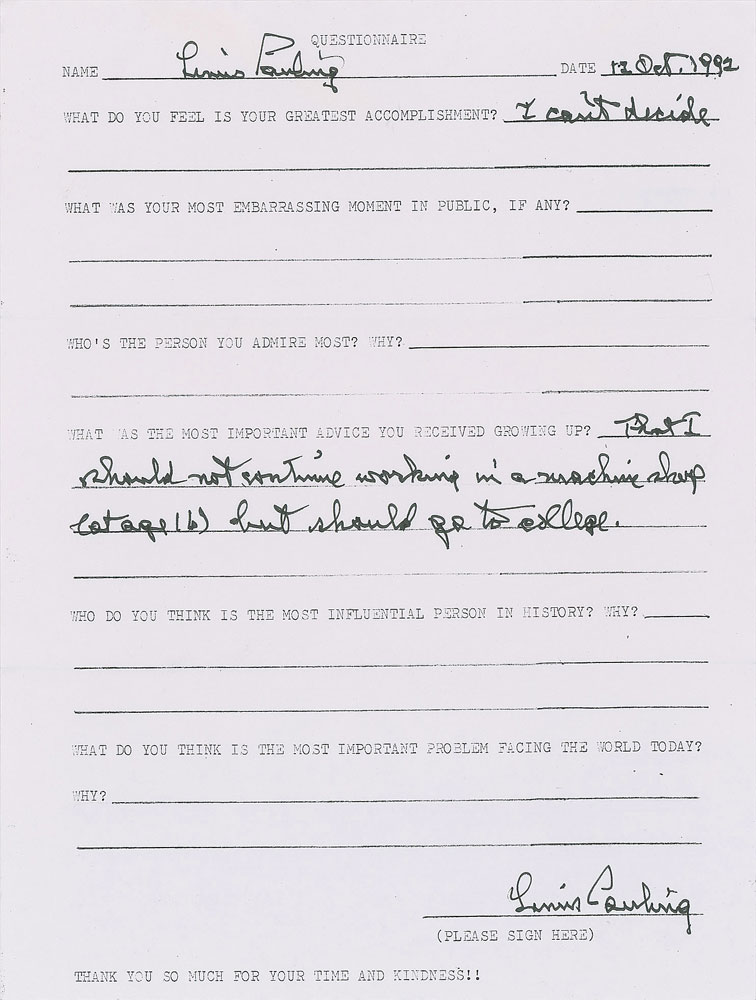 QUESTIONNAIRE
NAME Linus Pauling DATE 12 Oct. 1992
WHAT DO YOU FEEL IS YOUR GREATEST ACCOMPLISHMENT? I can't decide
WHAT WAS YOUR MOST EMBARRASSING MOMENT IN PUBLIC, IF ANY?
WHO'S THE PERSON YOU ADMIRE MOST? WHY?
WHAT WAS THE MOST IMPORTANT ADVICE YOU RECEIVED GROWING UP? That I
should not continue working in a machine shop
(at age 16) but should go to college.
WHO DO YOU THINK IS THE MOST INFLUENTIAL PERSON IN HISTORY? WHY?
WHAT DO YOU THINK IS THE MOST IMPORTANT PROBLEM FACING THE WORLD TODAY?
WHY?
Linus Pauling
(PLEASE SIGN HERE)
THANK YOU SO MUCH FOR YOUR TIME AND KINDNESS!!